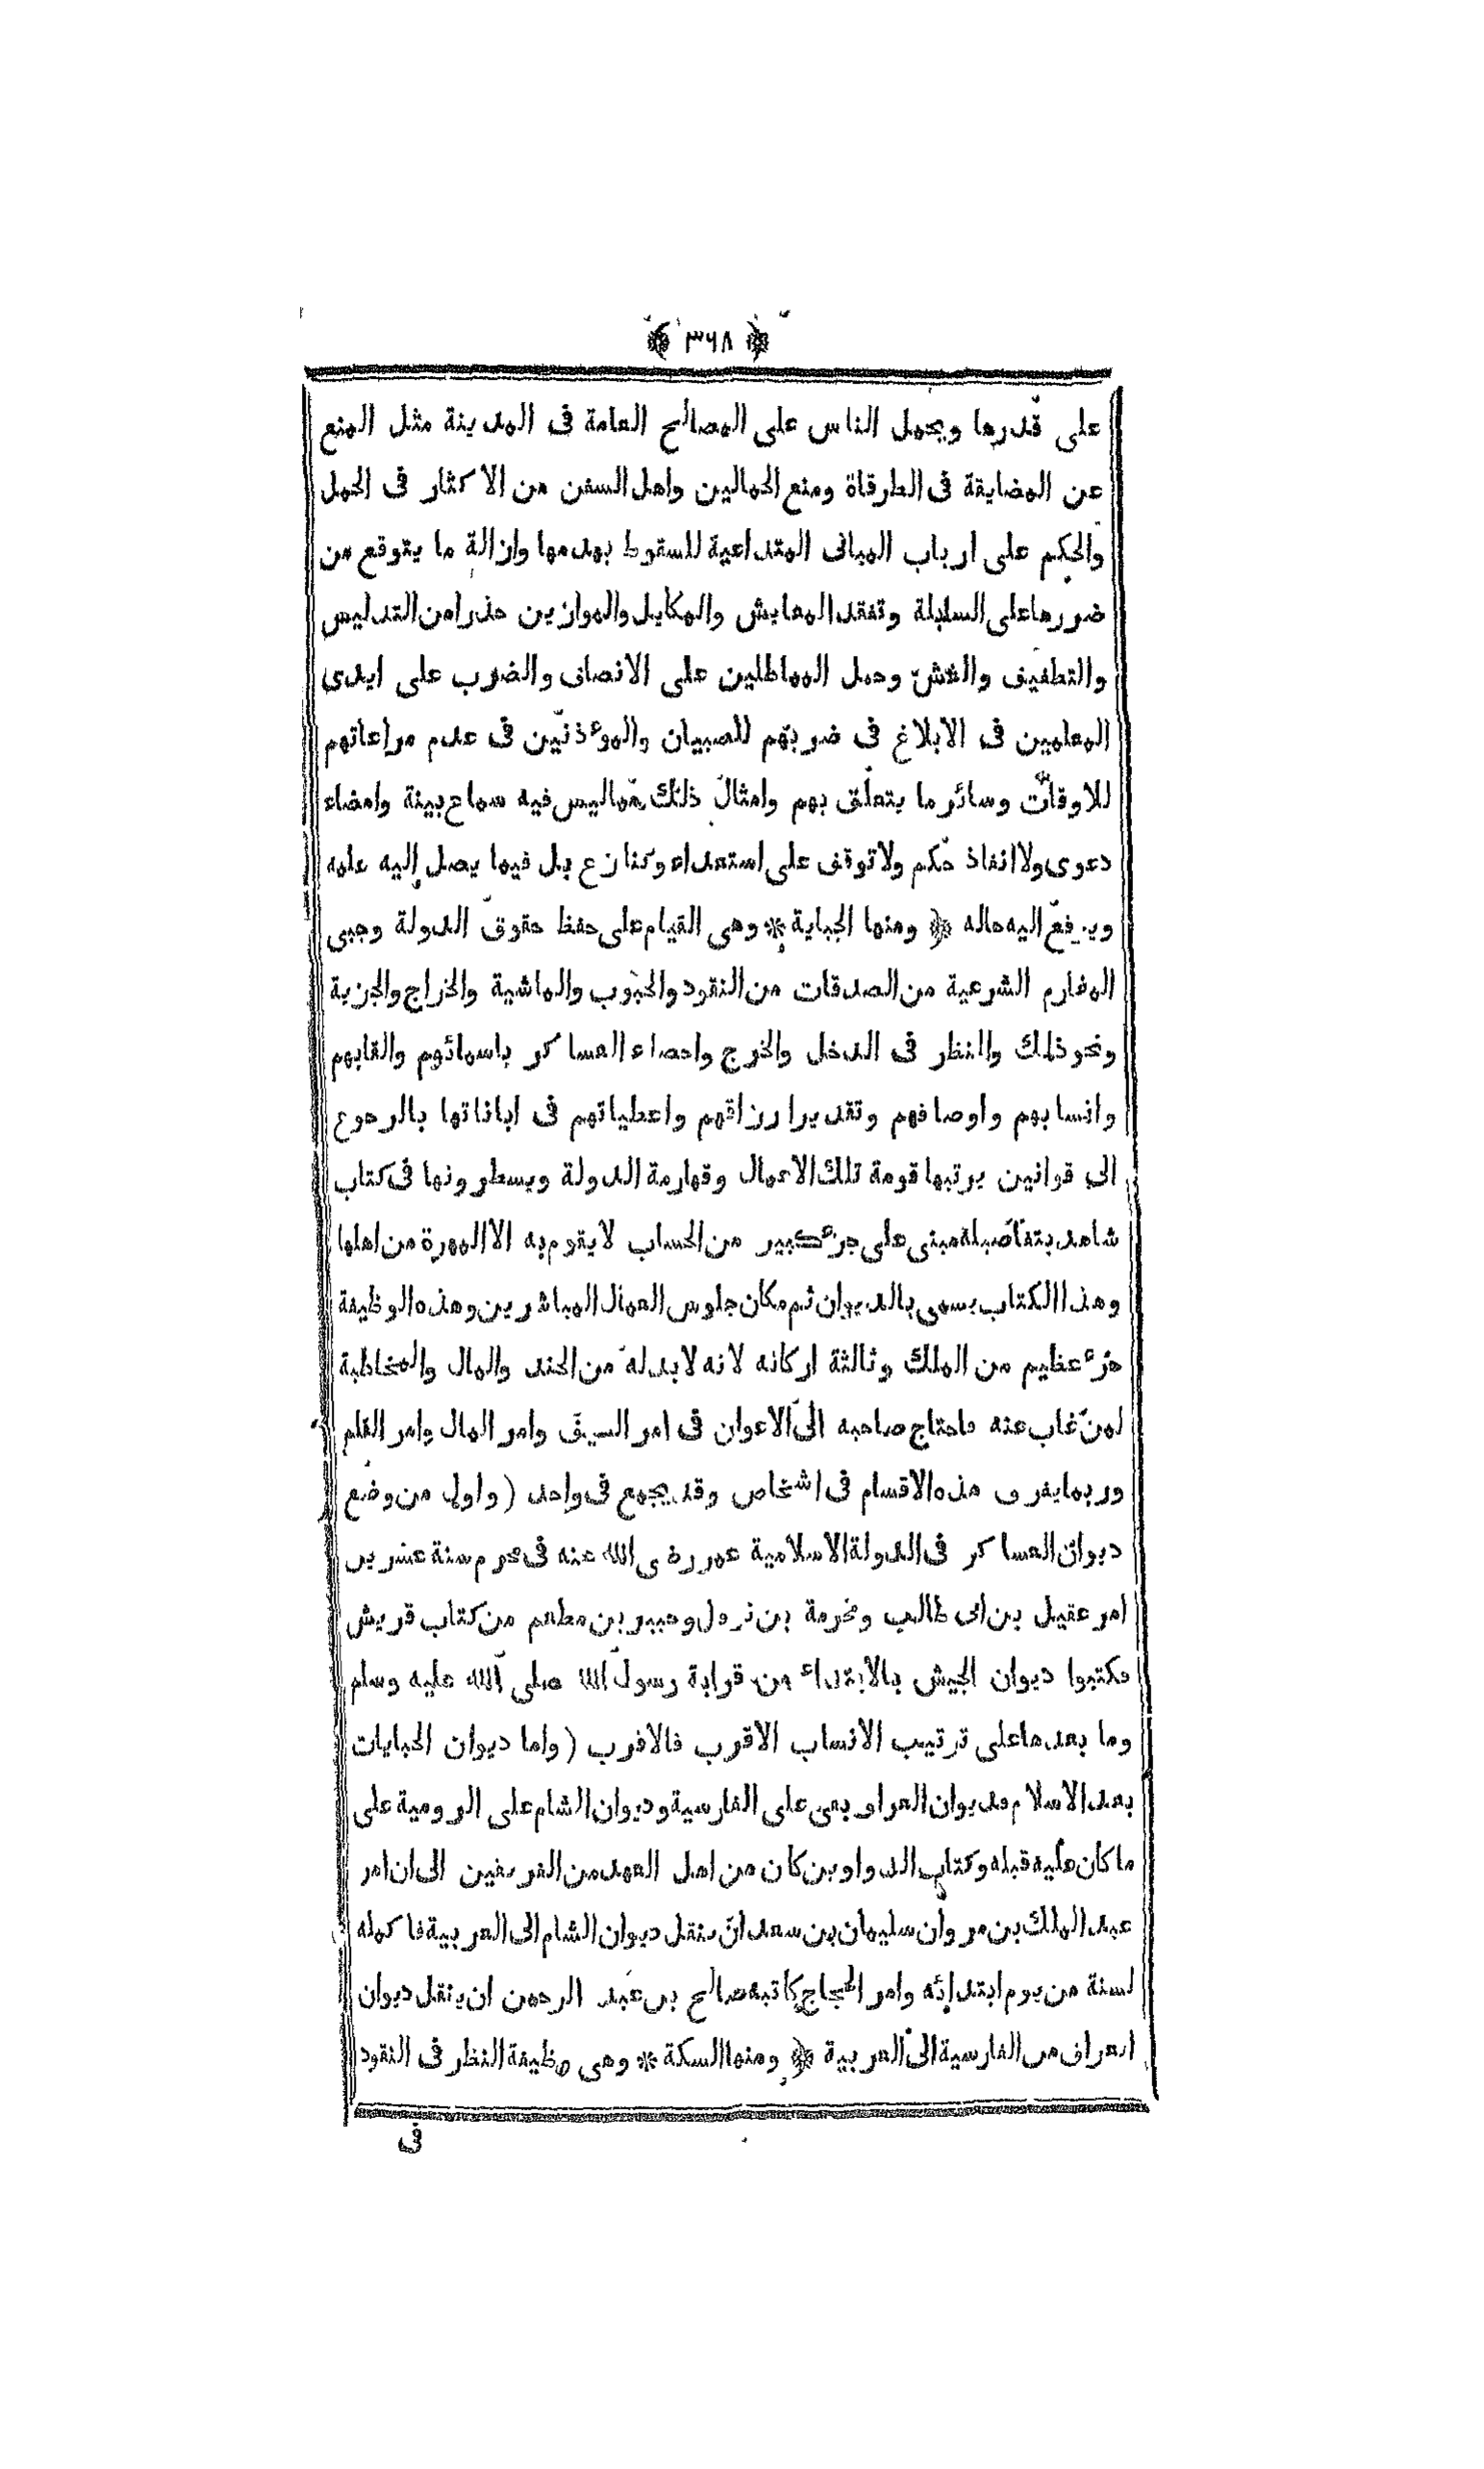 ﴿ ٣٦٨ ﴾
على قدرها ويحمل الناس على المصالح العامة فى المدينة مثل المنع
عن المضايقة فى الطرقاة ومنع الحمالين واهل السفن من الاكثار فى الحمل
والحكم على ارباب المبانى المتداعية للسقوط بهدمها وازالة ما يتوقع من
ضررها على السابلة وتفقد المعايش والمكايل والموازين حذرا من التدليس
والتطفيف والغش وحمل المماطلين على الانصاف والضرب على ايدى
المعلمين فى الابلاغ فى ضربهم للصبيان والموءذنين فى عدم مراعاتهم
للاوقات وسائر ما يتعلق بهم وامثال ذلك مما ليس فيه سماع بينة وامضاء
دعوى ولا انفاذ حكم ولا توقف على استعداء وتنازع بل فيما يصل اليه علمه
ويرفع اليه حاله ﴿ ومنها الجباية * وهى القيام على حفظ حقوق الدولة وجبى
المغارم الشرعية من الصدقات من النقود والحبوب والماشية والخراج والجزية
ونحو ذلك والنظر فى الدخل والخرج واحصاء العساكر باسمائهم والقابهم
وانسابهم واوصافهم وتقدير ارزاقهم واعطياتهم فى اباناتها بالرجوع
الى قوانين يرتبها قومة تلك الاعمال وقهارمة الدولة ويسطرونها فى كتاب
شاهد بتفاصيله مبنى على جزء كبير من الحساب لا يقوم به الا المهرة من اهلها
وهذا الكتاب يسمى بالديوان ثم مكان جلوس العمال المباشرين وهذه الوظيفة
جزء عظيم من الملك وثالثة اركانه لانه لابد له من الجند والمال والمخاطبة
لمن غاب عنه فاحتاج صاحبه الى الاعوان فى امر السيف وامر المال وامر القلم
وربما يفرق هذه الاقسام فى اشخاص وقد يجمع فى واحد (واول من وضع
ديوان العساكر فى الدولة الاسلامية عمر رضى الله عنه فى محرم سنة عشرين
امر عقيل بن ابى طالب ومخرمة بن نوفل وجبير بن مطعم من كتاب قريش
فكتبوا ديوان الجيش بالابتداء من قرابة رسول الله صلى الله عليه وسلم
وما بعدها على ترتيب الانساب الاقرب فالاقرب (واما ديوان الجبايات
بعد الاسلام فديوان العراق بقى على الفارسية وديوان الشام على الرومية على
ما كان عليه قبله وكتاب الدواوين كان من اهل العهد من الفريقين الى ان امر
عبد الملك بن مروان سليمان بن سعد ان ينقل ديوان الشام الى العربية فاكمله
لسنة من يوم ابتدائه وامر الحجاج كاتبه صالح بن عبد الرحمن ان ينقل ديوان
العراق من الفارسية الى العربية ﴿ ومنها السكة * وهى وظيفة النظر فى النقود
فى